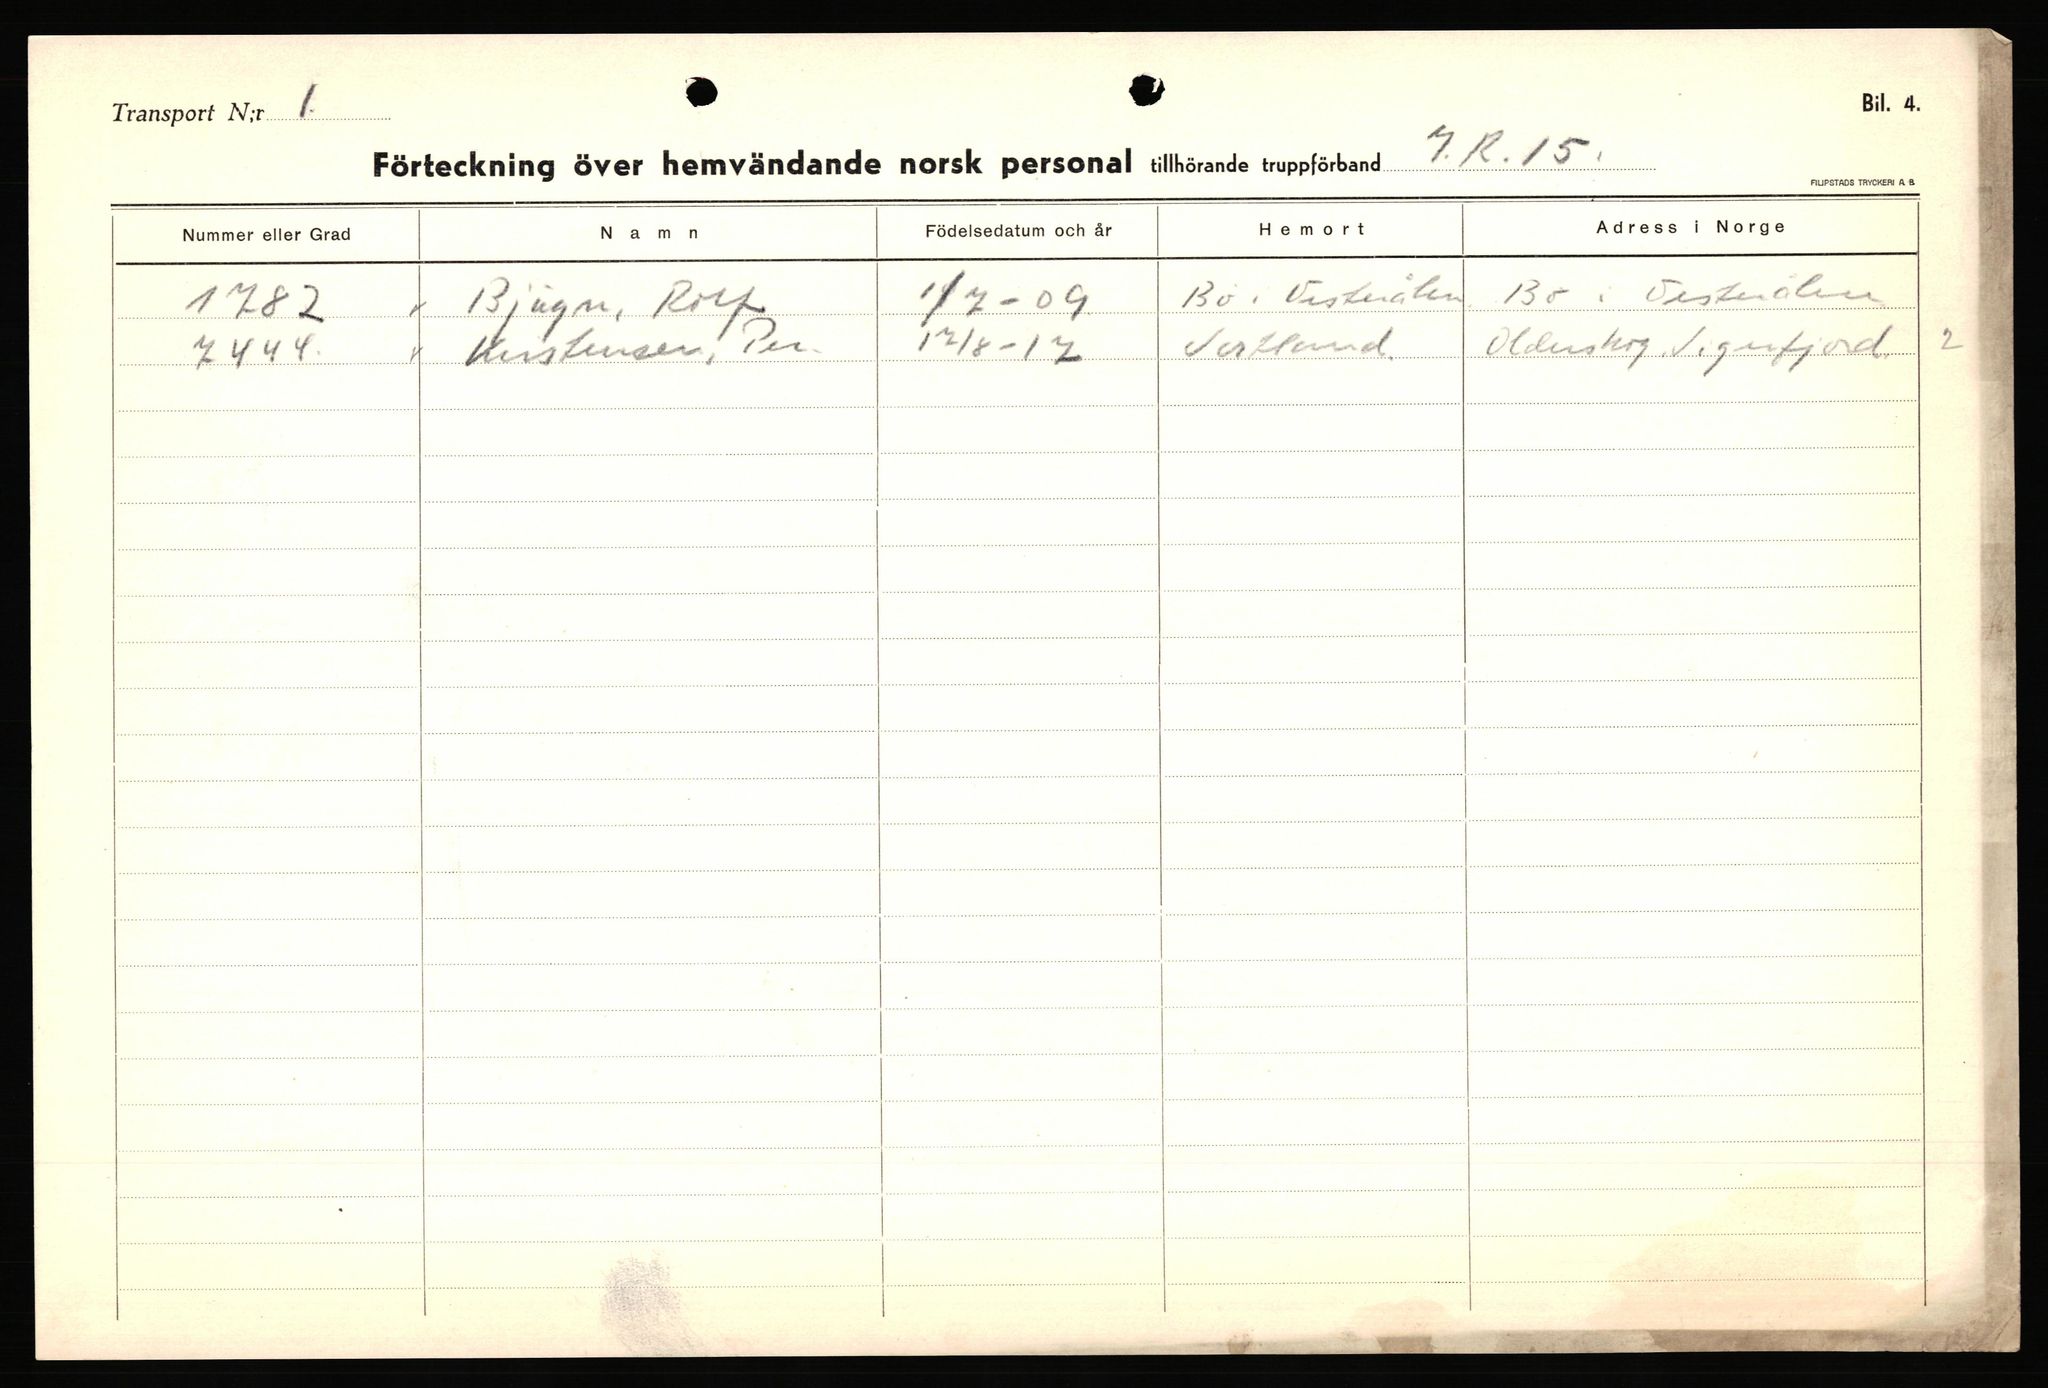 Transport N;r 1.
Bil. 4.
Förteckning över hemvändande norsk personal tillhörande truppförband I.R. 15.
FILIPSTADS TRYCKERI A. B.
Nummer eller Grad Namn Födelsedatum och år Hemort Adress i Norge
1782 Bjugn, Rolf 1/7-09 Bö i Vesterålen Bö i Vesterålen
7444. Kristensen, Per. 17/8-17 Sortland. Olderskog. 2